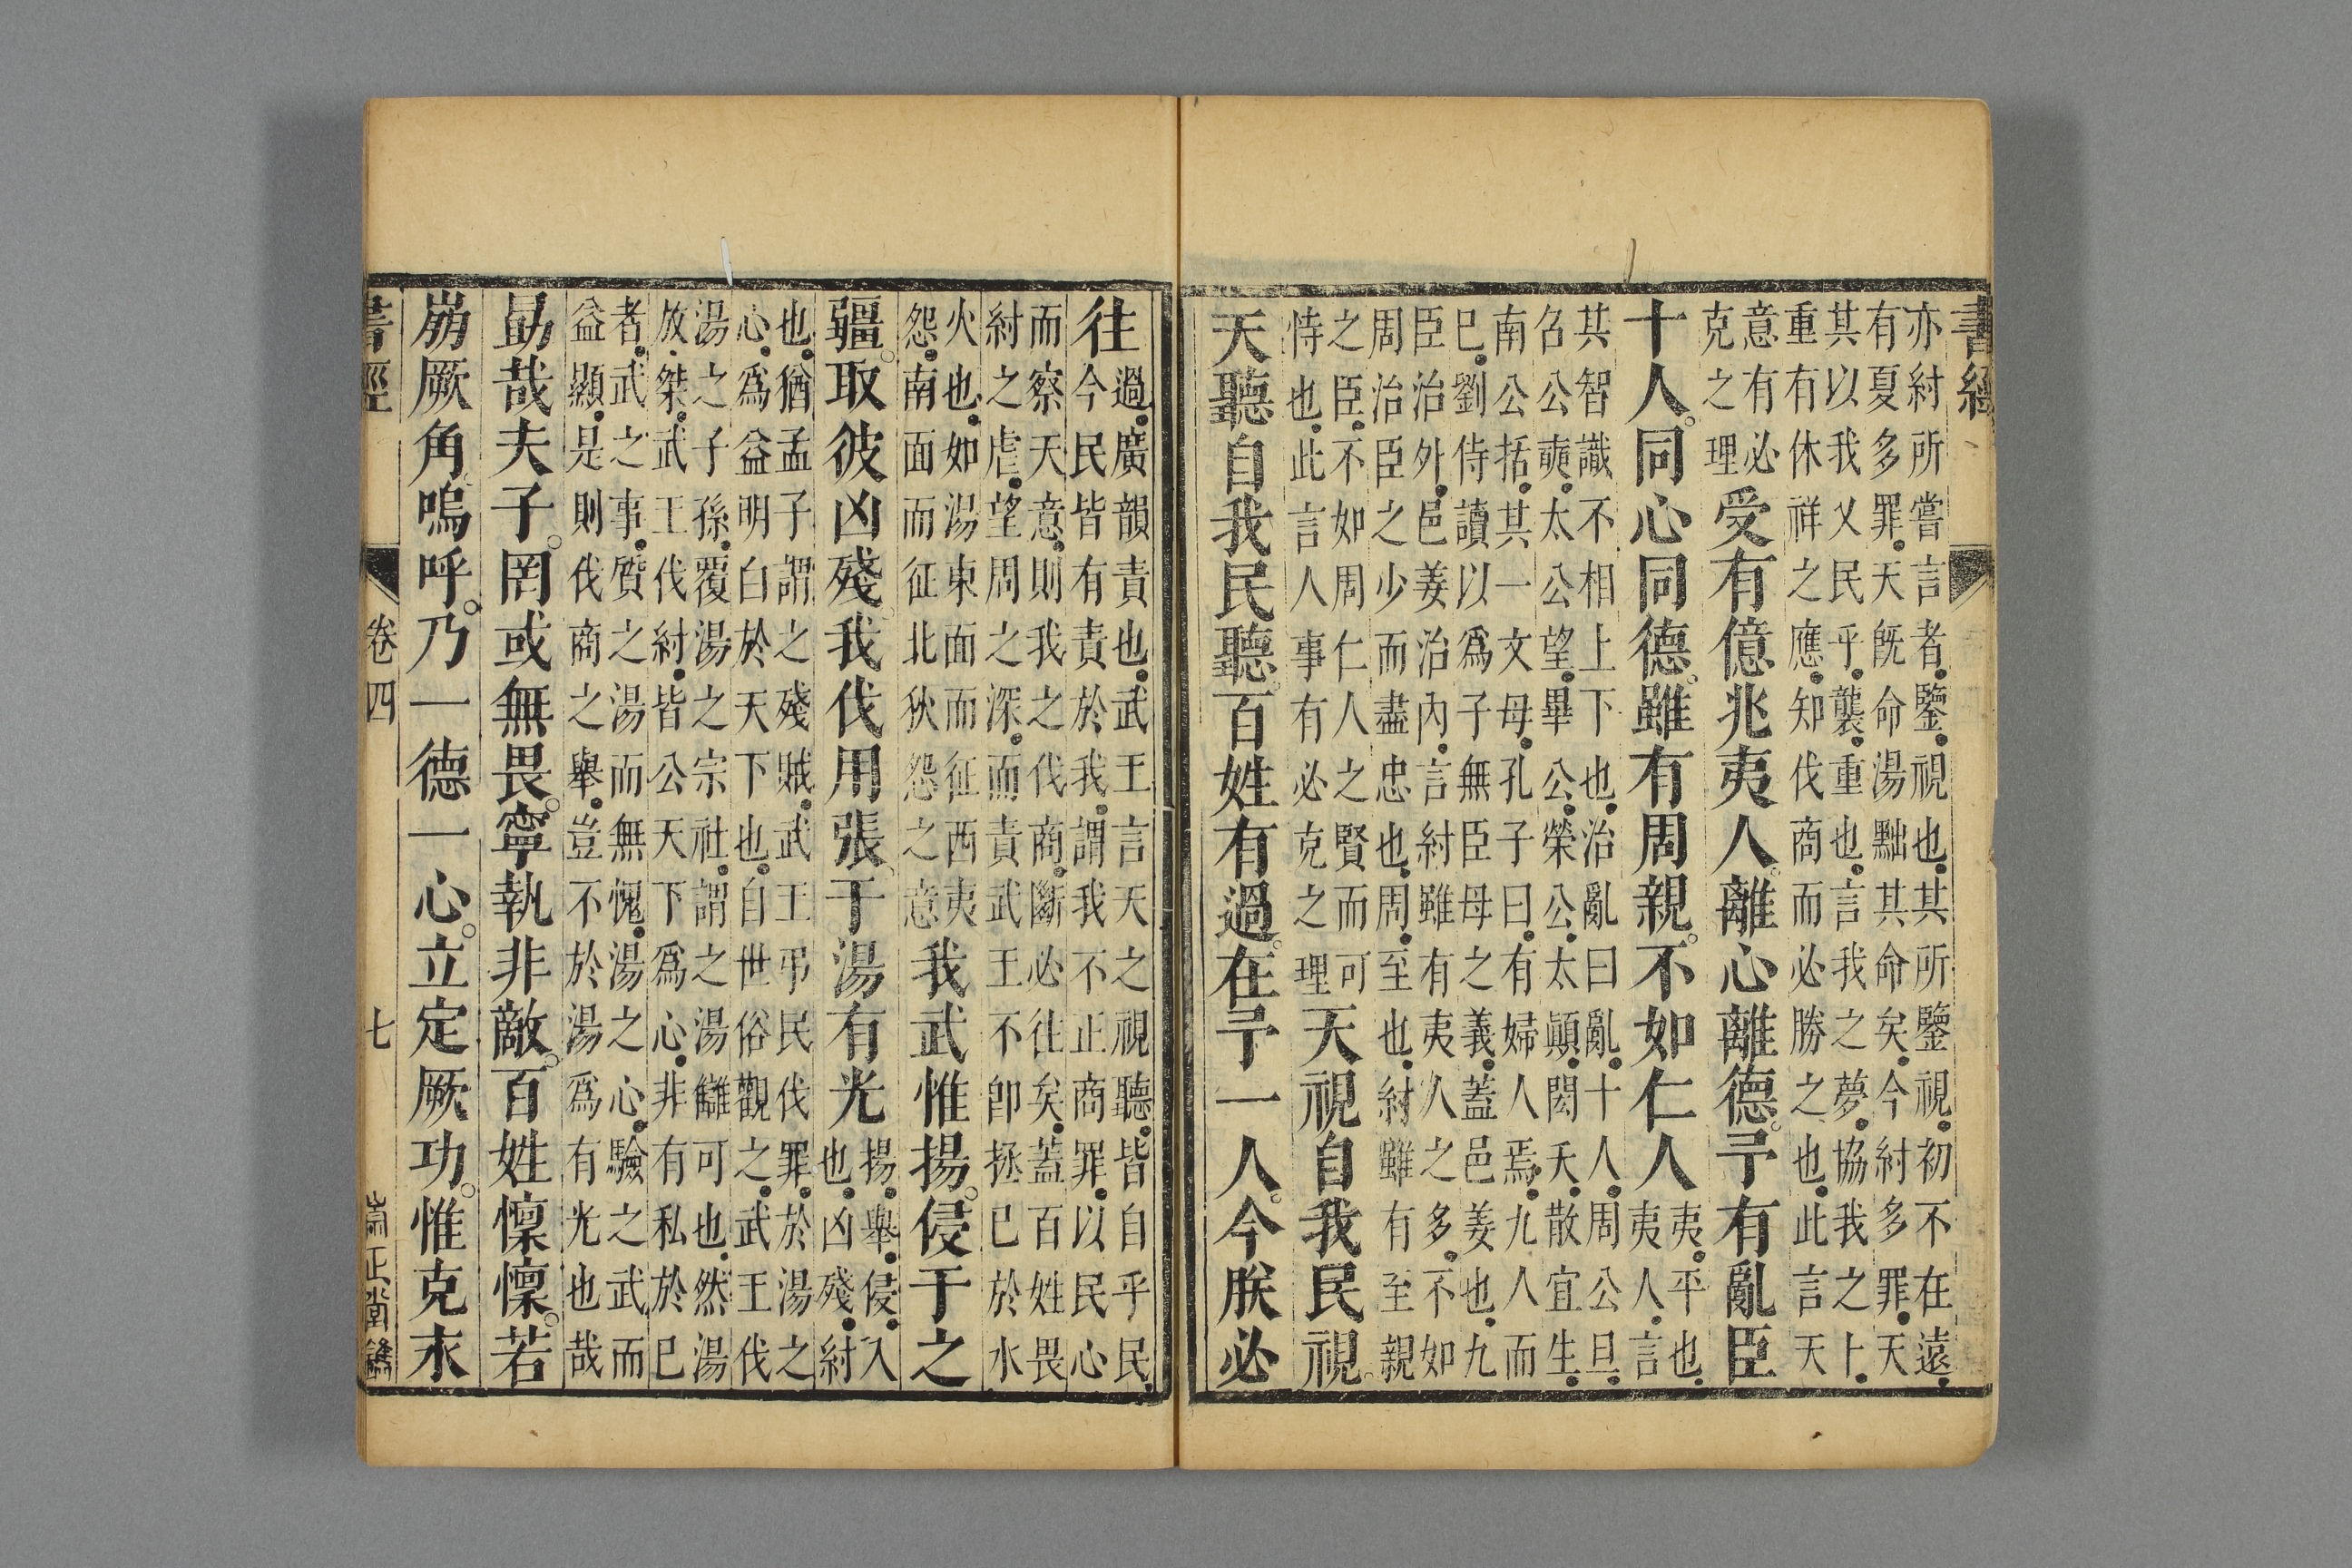 書經
亦紂所嘗言者鑒視也其所鑒視初不在遠
有夏多罪天旣命湯黜其命矣今紂多罪天
其以我乂民乎襲重也言我之夢協我之卜
重有休祥之應知伐商而必勝之也此言天
意有必
克之理
受有億兆夷人離心離德予有亂臣
十人同心同德雖有周親不如仁人
夷平也
夷人言
其智識不相上下也治亂曰亂十人周公旦
召公奭太公望畢公榮公太顚閎夭散宜生
南公括其一文母孔子曰有婦人焉九人而
已劉侍讀以爲子無臣母之義蓋邑姜也九
臣治外邑姜治內言紂雖有夷人之多不如
周治臣之少而盡忠也周至也紂雖有至親
之臣不如周仁人之賢而可
恃也此言人事有必克之理
天視自我民視
天聽自我民聽百姓有過在予一人今朕必
往
過廣韻責也武王言天之視聽皆自乎民
今民皆有責於我謂我不正商罪以民心
而察天意則我之伐商斷必往矣蓋百姓畏
紂之虐望周之深而責武王不卽拯已於水
火也如湯東面而征西夷
怨南面而征北狄怨之意
我武惟揚侵于之
疆取彼凶殘我伐用張于湯有光
揚舉侵入
也凶殘紂
也猶孟子謂之殘賊武王弔民伐罪於湯之
心爲益明白於天下也自世俗觀之武王伐
湯之子孫覆湯之宗社謂之湯讎可也然湯
放桀武王伐紂皆公天下爲心非有私於已
者武之事質之湯而無愧湯之心驗之武而
益顯是則伐商之舉豈不於湯爲有光也哉
勖哉夫子罔或無畏寧執非敵百姓懍懍若
崩厥角嗚呼乃一德一心立定厥功惟克永
書經 卷四 七 崇正堂鐫